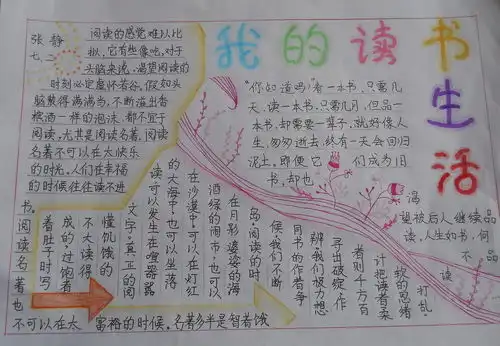 我的读书生活
张静
七.二
阅读的感觉难以比
拟,它有些像吃.对于
头脑来说,渴望阅读的
时刻必定虚怀若谷,假如头
脑装得满满当,不断溢出香
槟酒一样的泡沫,都不宜于
阅读,尤其是阅读名著.阅读
名著不可以在太快乐
的时光.人们在幸福
的时候往往读不进
书。阅读名著也
不可以在太 富裕的时候,名著多半是智者饿
着肚子时写
成的,过饱者
不大读得
懂饥饿的
文字.真正的阅
读可以发生在喧嚣
的大海中,也可以坐落
在沙漠中,可以在灯红
酒绿的闹市,也可以
在月影婆娑的海
岛.阅读的时
候,我们不断
同书的作者争
辩,我们极力想
寻出破绽,作
者则千方百
计把读者柔
软的思绪
打乱.
"你知道吗"看一本书,只需几
天,读一本书,只需几月,但品一
本书,却需要一辈子,就好像人
生,匆匆逝去,终有一天会回归
泥土,即便它 们成为旧
书,却也 渴
望被后人继续品
读,人生如书,何
不 品
读